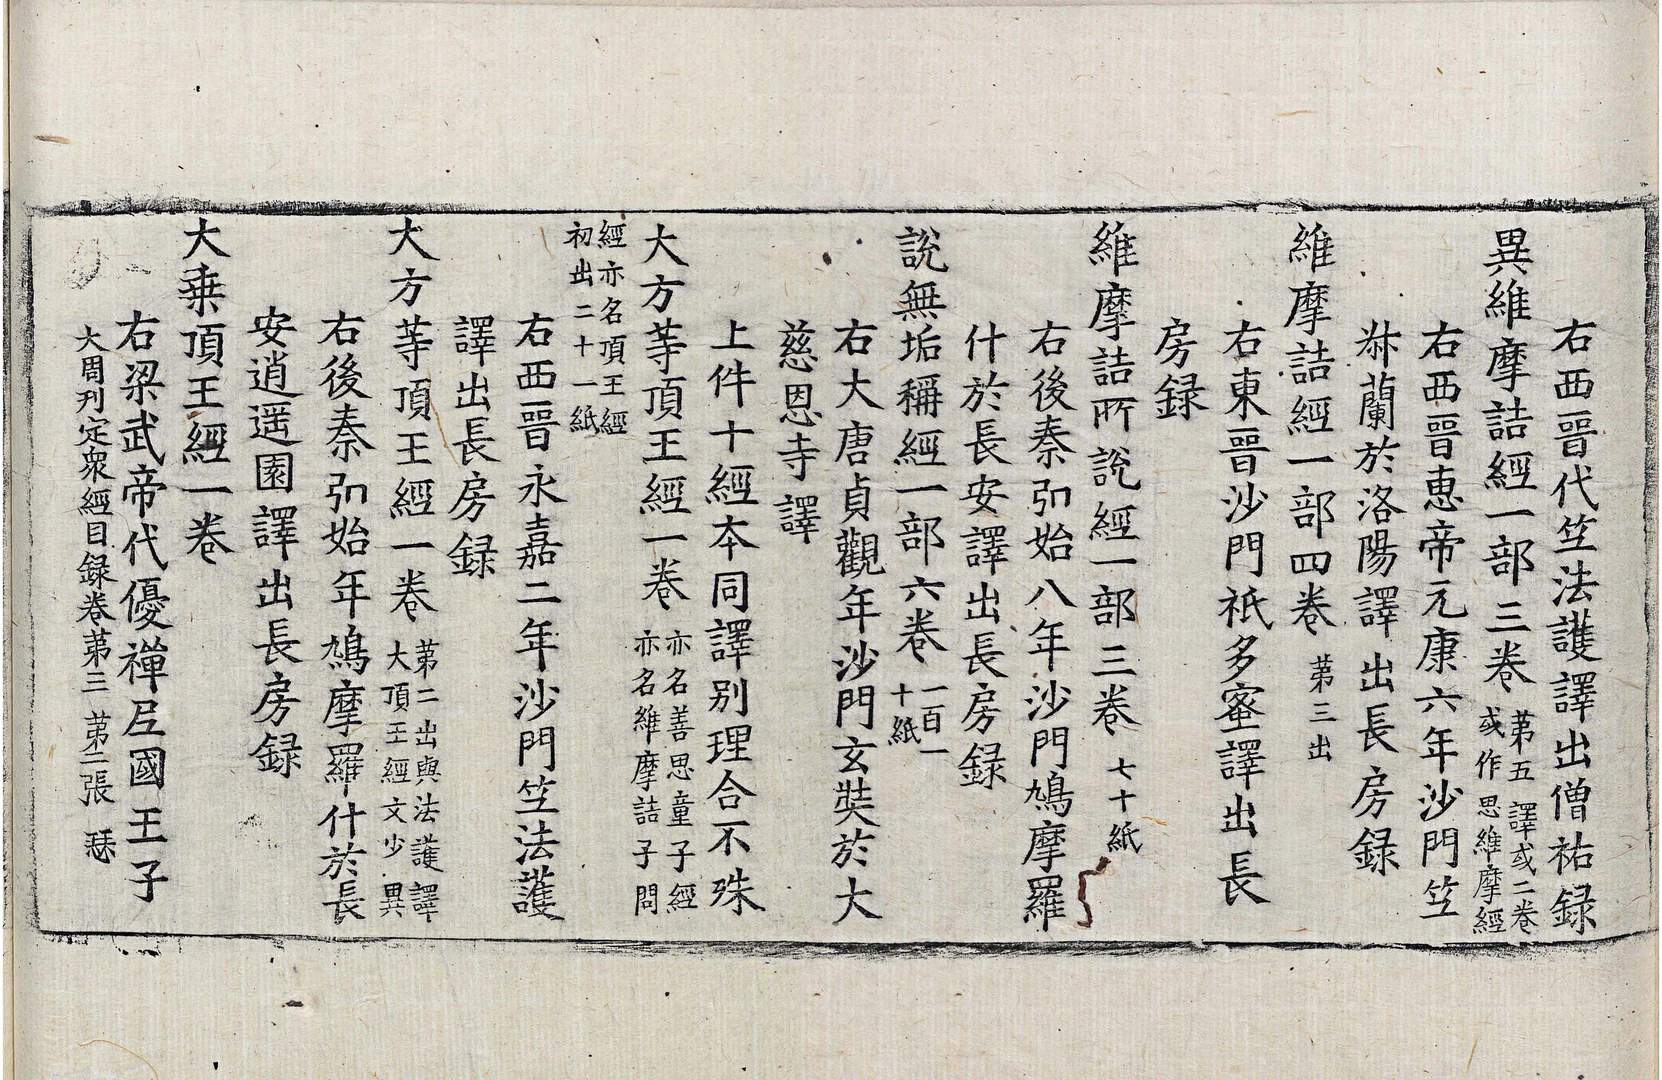 右西晉代竺法護譯出僧祐録
異維摩詰經一部三卷 第五譯或二卷
或作思維摩經
右西晉惠帝元康六年沙門竺
叔蘭於洛陽譯出長房録
維摩詰經一部四卷 第三出
右東晉沙門祇多蜜譯出長
房録
維摩詰所說經一部三卷 七十紙
右後秦弘始八年沙門鳩摩羅
什於長安譯出長房録
說無垢稱經一部六卷 一百一
十紙
右大唐貞觀年沙門玄奘於大
慈恩寺譯
上件十經本同譯别理合不殊
大方等頂王經一卷 亦名善思童子經
亦名維摩詰子問
經亦名頂王經
初出二十一紙
右西晉永嘉二年沙門竺法護
譯出長房録
大方等頂王經一卷 第二出與法護譯
大頂王經文少異
右後秦弘始年鳩摩羅什於長
安逍遥園譯出長房録
大乗頂王經一卷
右梁武帝代優禪尼國王子
大周刊定衆經目録卷第三 第二張